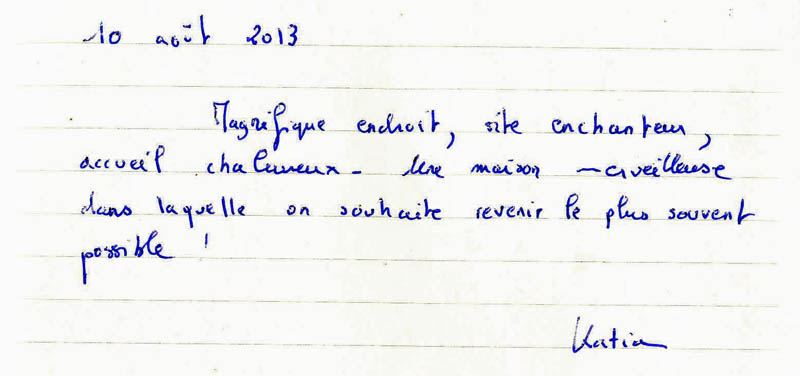 10 août 2013
Magnifique endroit, site enchanteur,
accueil chaleureux. Une maison merveilleuse
dans laquelle on souhaite revenir le plus souvent
possible !
Katia